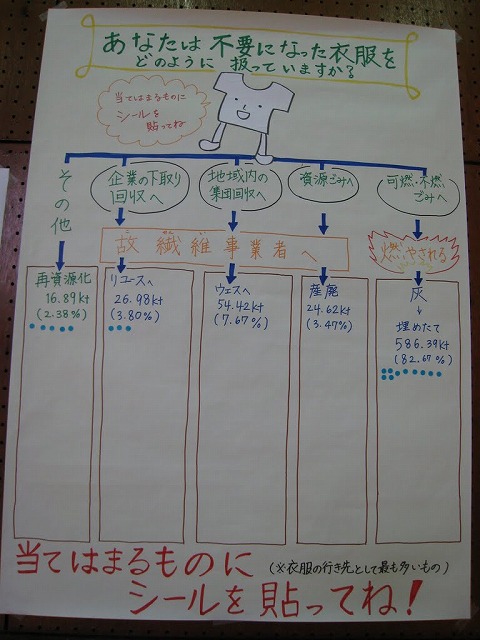 あなたは不要になった衣服を
どのように扱っていますか?
当てはまるものに
シールを
貼ってね
その他
企業の下取り
回収へ
地域内の
集団回収へ
資源ごみへ
可燃・不燃
ごみへ
故繊維事業者へ
燃やされる
再資源化
16.89kt
(2.38%)
リユースへ
26.98kt
(3.80%)
ウェスへ
54.42kt
(7.67%)
産廃
24.62kt
(3.47%)
灰
↓
埋めたて
586.39kt
(82.67%)
当てはまるものに
(※衣服の行き先として最も多いもの)
シールを貼ってね!